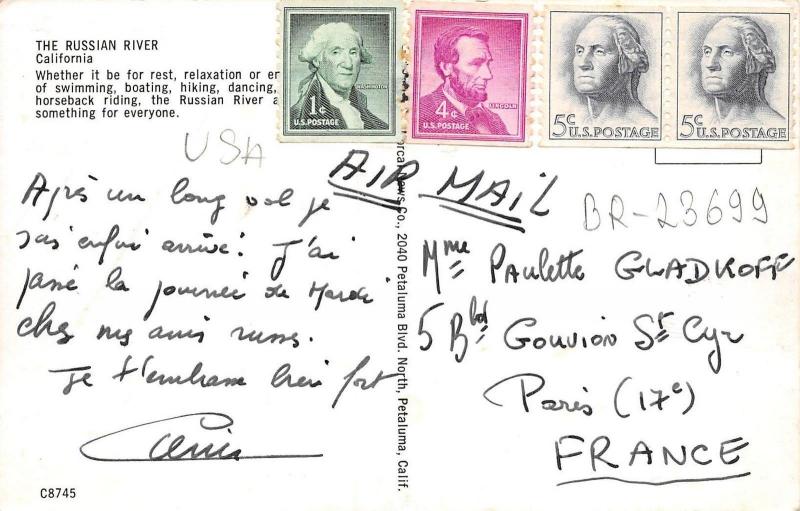 THE RUSSIAN RIVER
California
Whether it be for rest, relaxation or en
of swimming, boating, hiking, dancing,
horseback riding, the Russian River a
something for everyone.
1¢ WASHINGTON
U.S. POSTAGE
4¢ LINCOLN
U.S. POSTAGE
5¢
U.S. POSTAGE
5¢
U.S. POSTAGE
USA
AIR MAIL
BR-23699
Après un long vol je
suis enfin arrivé. J'ai
passé la journée de Mardi
chez mes amis russes.
Je t'embrasse bien fort
Mme Paulette GLADKOFF
5 Bld Gouvion St Cyr
Paris (17e)
FRANCE
News Co., 2040 Petaluma Blvd. North, Petaluma, Calif.
C8745